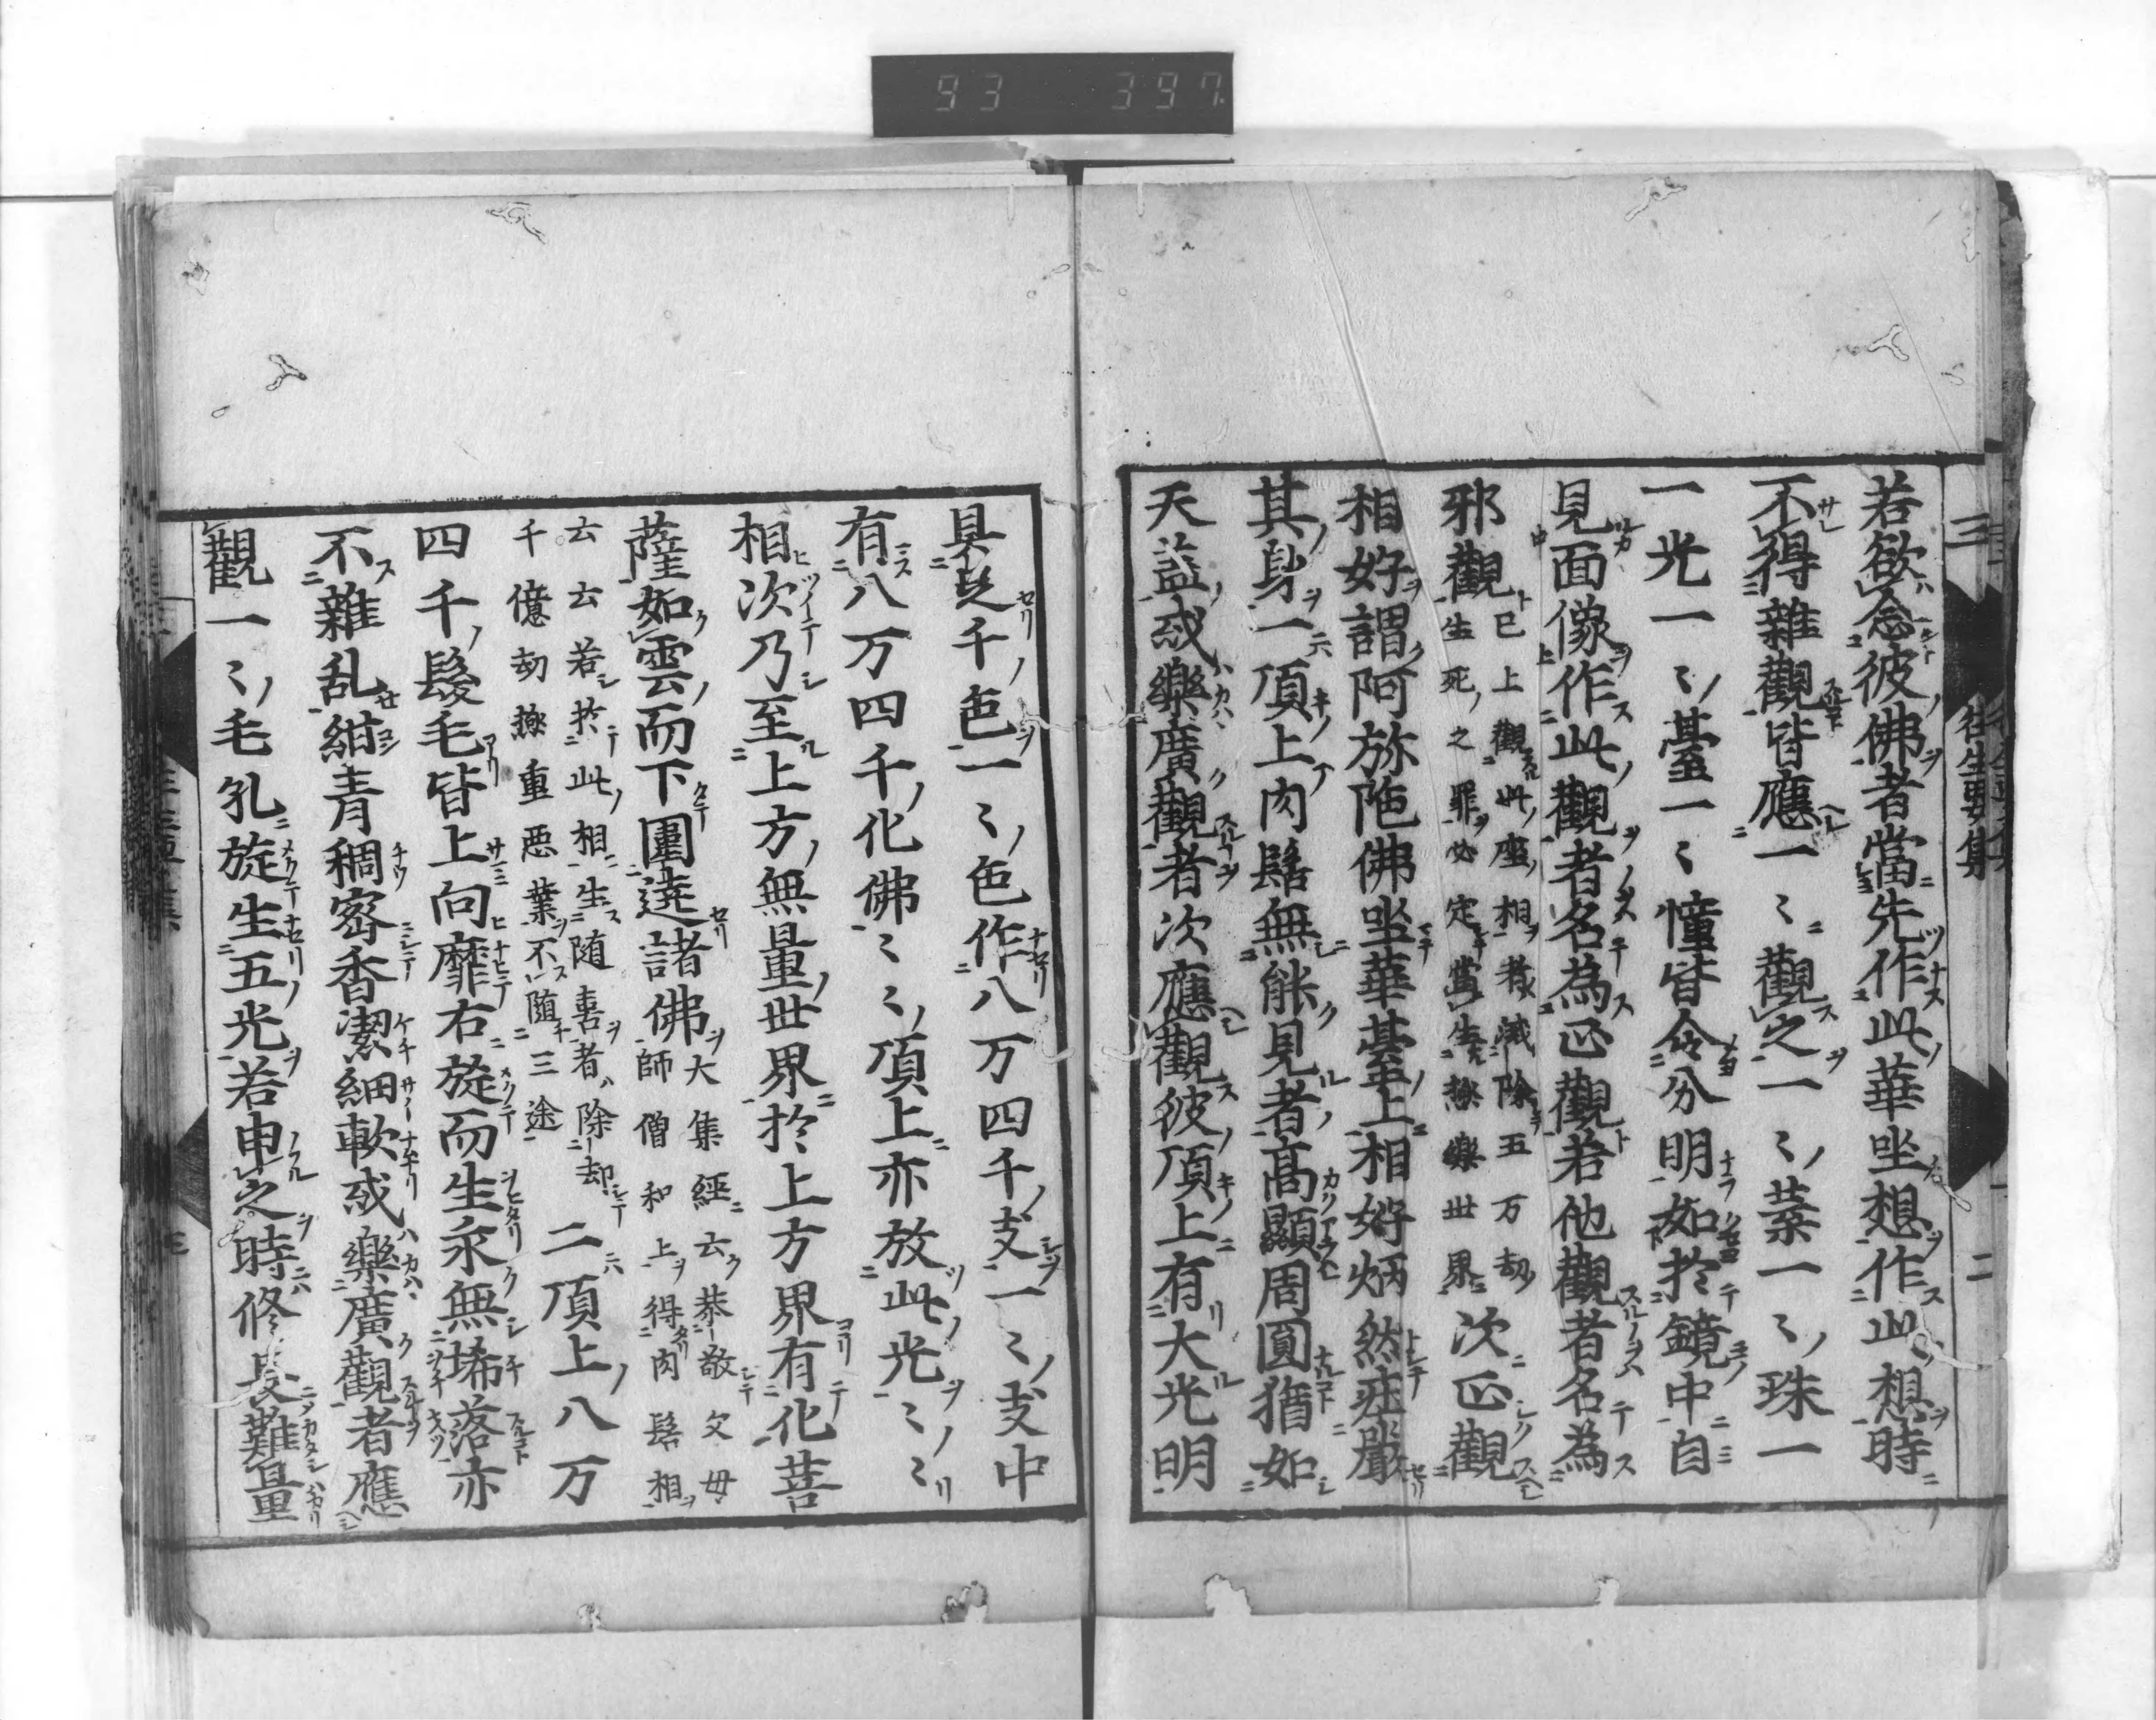 93 397
往生要集
二
若欲念彼佛者當先作此華坐想作此想時
不得雜觀皆應一〻觀之一〻葉一〻珠一
一光一〻臺一〻幢皆令分明如於鏡中自
見面像作此觀者名為正觀若他觀者名為
邪觀
已上觀此座相者滅除五万劫
生死之罪必定當生極樂世界
次正觀
相好謂阿弥陁佛坐華臺上相好炳然莊嚴
其身一頂上肉髻無能見者高顯周圓猶如
天蓋或樂廣觀者次應觀彼頂上有大光明
具足千色一〻色作八万四千支一〻支中
有八万四千化佛〻〻頂上亦放此光〻〻
相次乃至上方無量世界於上方界有化菩
薩如雲而下圍遶諸佛
大集經云恭敬父母
師僧和上得肉髻相
云云若於此相生随喜者除却
千億劫極重惡業不随三途
二頂上八万
四千髮毛皆上向靡右旋而生永無埽落亦
不雜乱紺青稠密香潔細軟或樂廣觀者應
觀一〻毛孔旋生五光若申之時修長難量